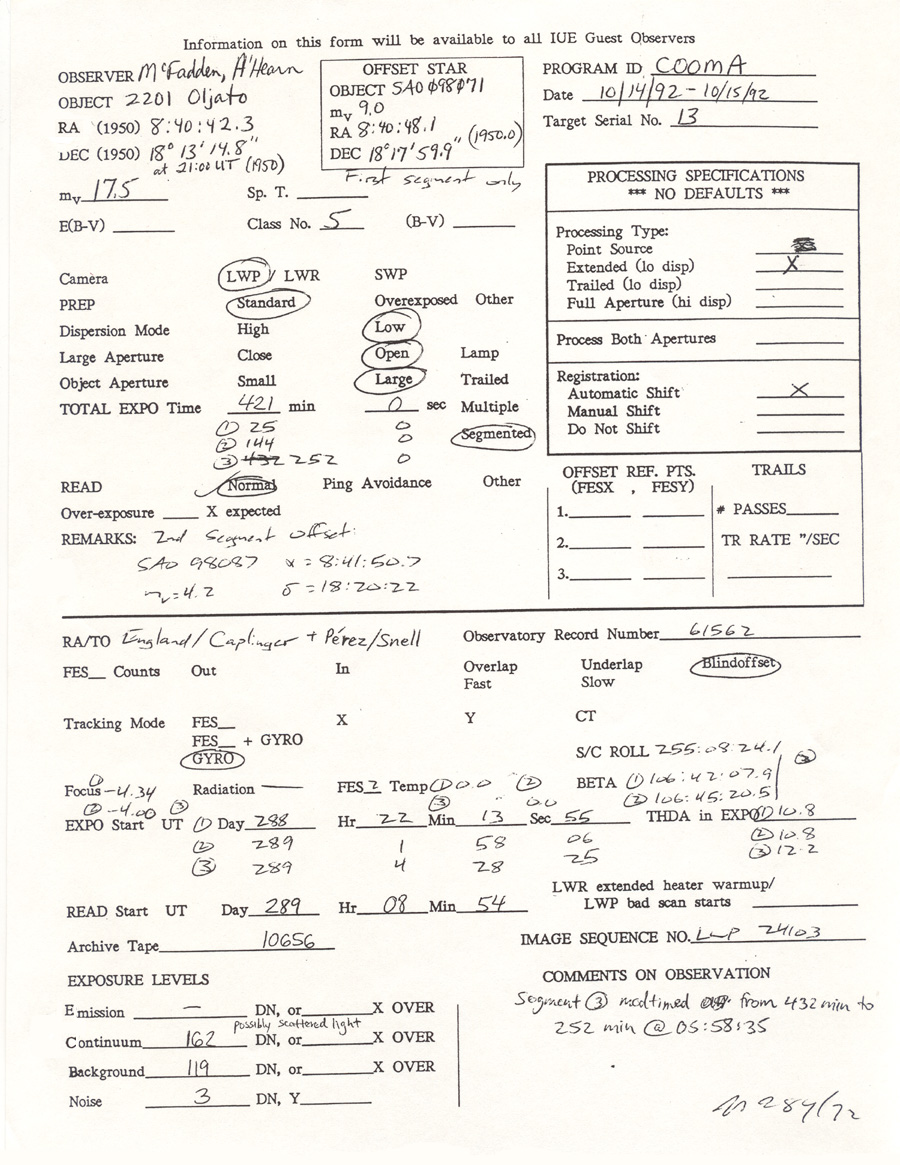 Information on this form will be available to all IUE Guest Observers
OBSERVER McFadden, A'Hearn
OBJECT 2201 Oljato
RA (1950) 8:40:42.3
DEC (1950) 18° 13' 14.8"
at 21:00 UT (1950)
mv 17.5 Sp. T.
E(B-V) Class No. 5 (B-V)
OFFSET STAR
OBJECT SAO 098071
mv 9.0
RA 8:40:48.1 (1950.0)
DEC 18°17'59.9"
First segment only
PROGRAM ID COOMA
Date 10/14/92 - 10/15/92
Target Serial No. 13
PROCESSING SPECIFICATIONS
*** NO DEFAULTS ***
Processing Type:
Point Source
Extended (lo disp) X
Trailed (lo disp)
Full Aperture (hi disp)
Process Both Apertures
Registration:
Automatic Shift X
Manual Shift
Do Not Shift
Camera LWP / LWR SWP
PREP Standard Overexposed Other
Dispersion Mode High Low
Large Aperture Close Open Lamp
Object Aperture Small Large Trailed
TOTAL EXPO Time 421 min 0 sec Multiple
① 25 0
② 144 0 Segmented
③ 432 252 0
READ Normal Ping Avoidance Other
Over-exposure X expected
REMARKS: 2nd Segment offset:
SAO 98087 α = 8:41:50.7
mv = 4.2 δ = 18:20:22
OFFSET REF. PTS.
(FESX , FESY)
1.
2.
3.
TRAILS
# PASSES
TR RATE "/SEC
RA/TO England/Caplinger + Pérez/Snell Observatory Record Number 61562
FES Counts Out In Overlap Underlap Blindoffset
Fast Slow
Tracking Mode FES X Y CT
FES + GYRO
GYRO
S/C ROLL 255:08:24.1
① ③
Focus -4.34 Radiation — FES 2 Temp ① 0.0 ② BETA ① 106:42:07.9
② -4.00 ③ ③ 0.0 ② 106:45:20.5
EXPO Start UT ① Day 288 Hr 22 Min 13 Sec 55 THDA in EXPO ① 10.8
② 289 1 58 06 ② 10.8
③ 289 4 28 25 ③ 12.2
LWR extended heater warmup/
LWP bad scan starts
READ Start UT Day 289 Hr 08 Min 54
Archive Tape 10656
IMAGE SEQUENCE NO. LWP 24103
EXPOSURE LEVELS
Emission — DN, or X OVER
possibly scattered light
Continuum 162 DN, or X OVER
Background 119 DN, or X OVER
Noise 3 DN, Y
COMMENTS ON OBSERVATION
Segment ③ modtimed from 432 min to
252 min @ 05:58:35